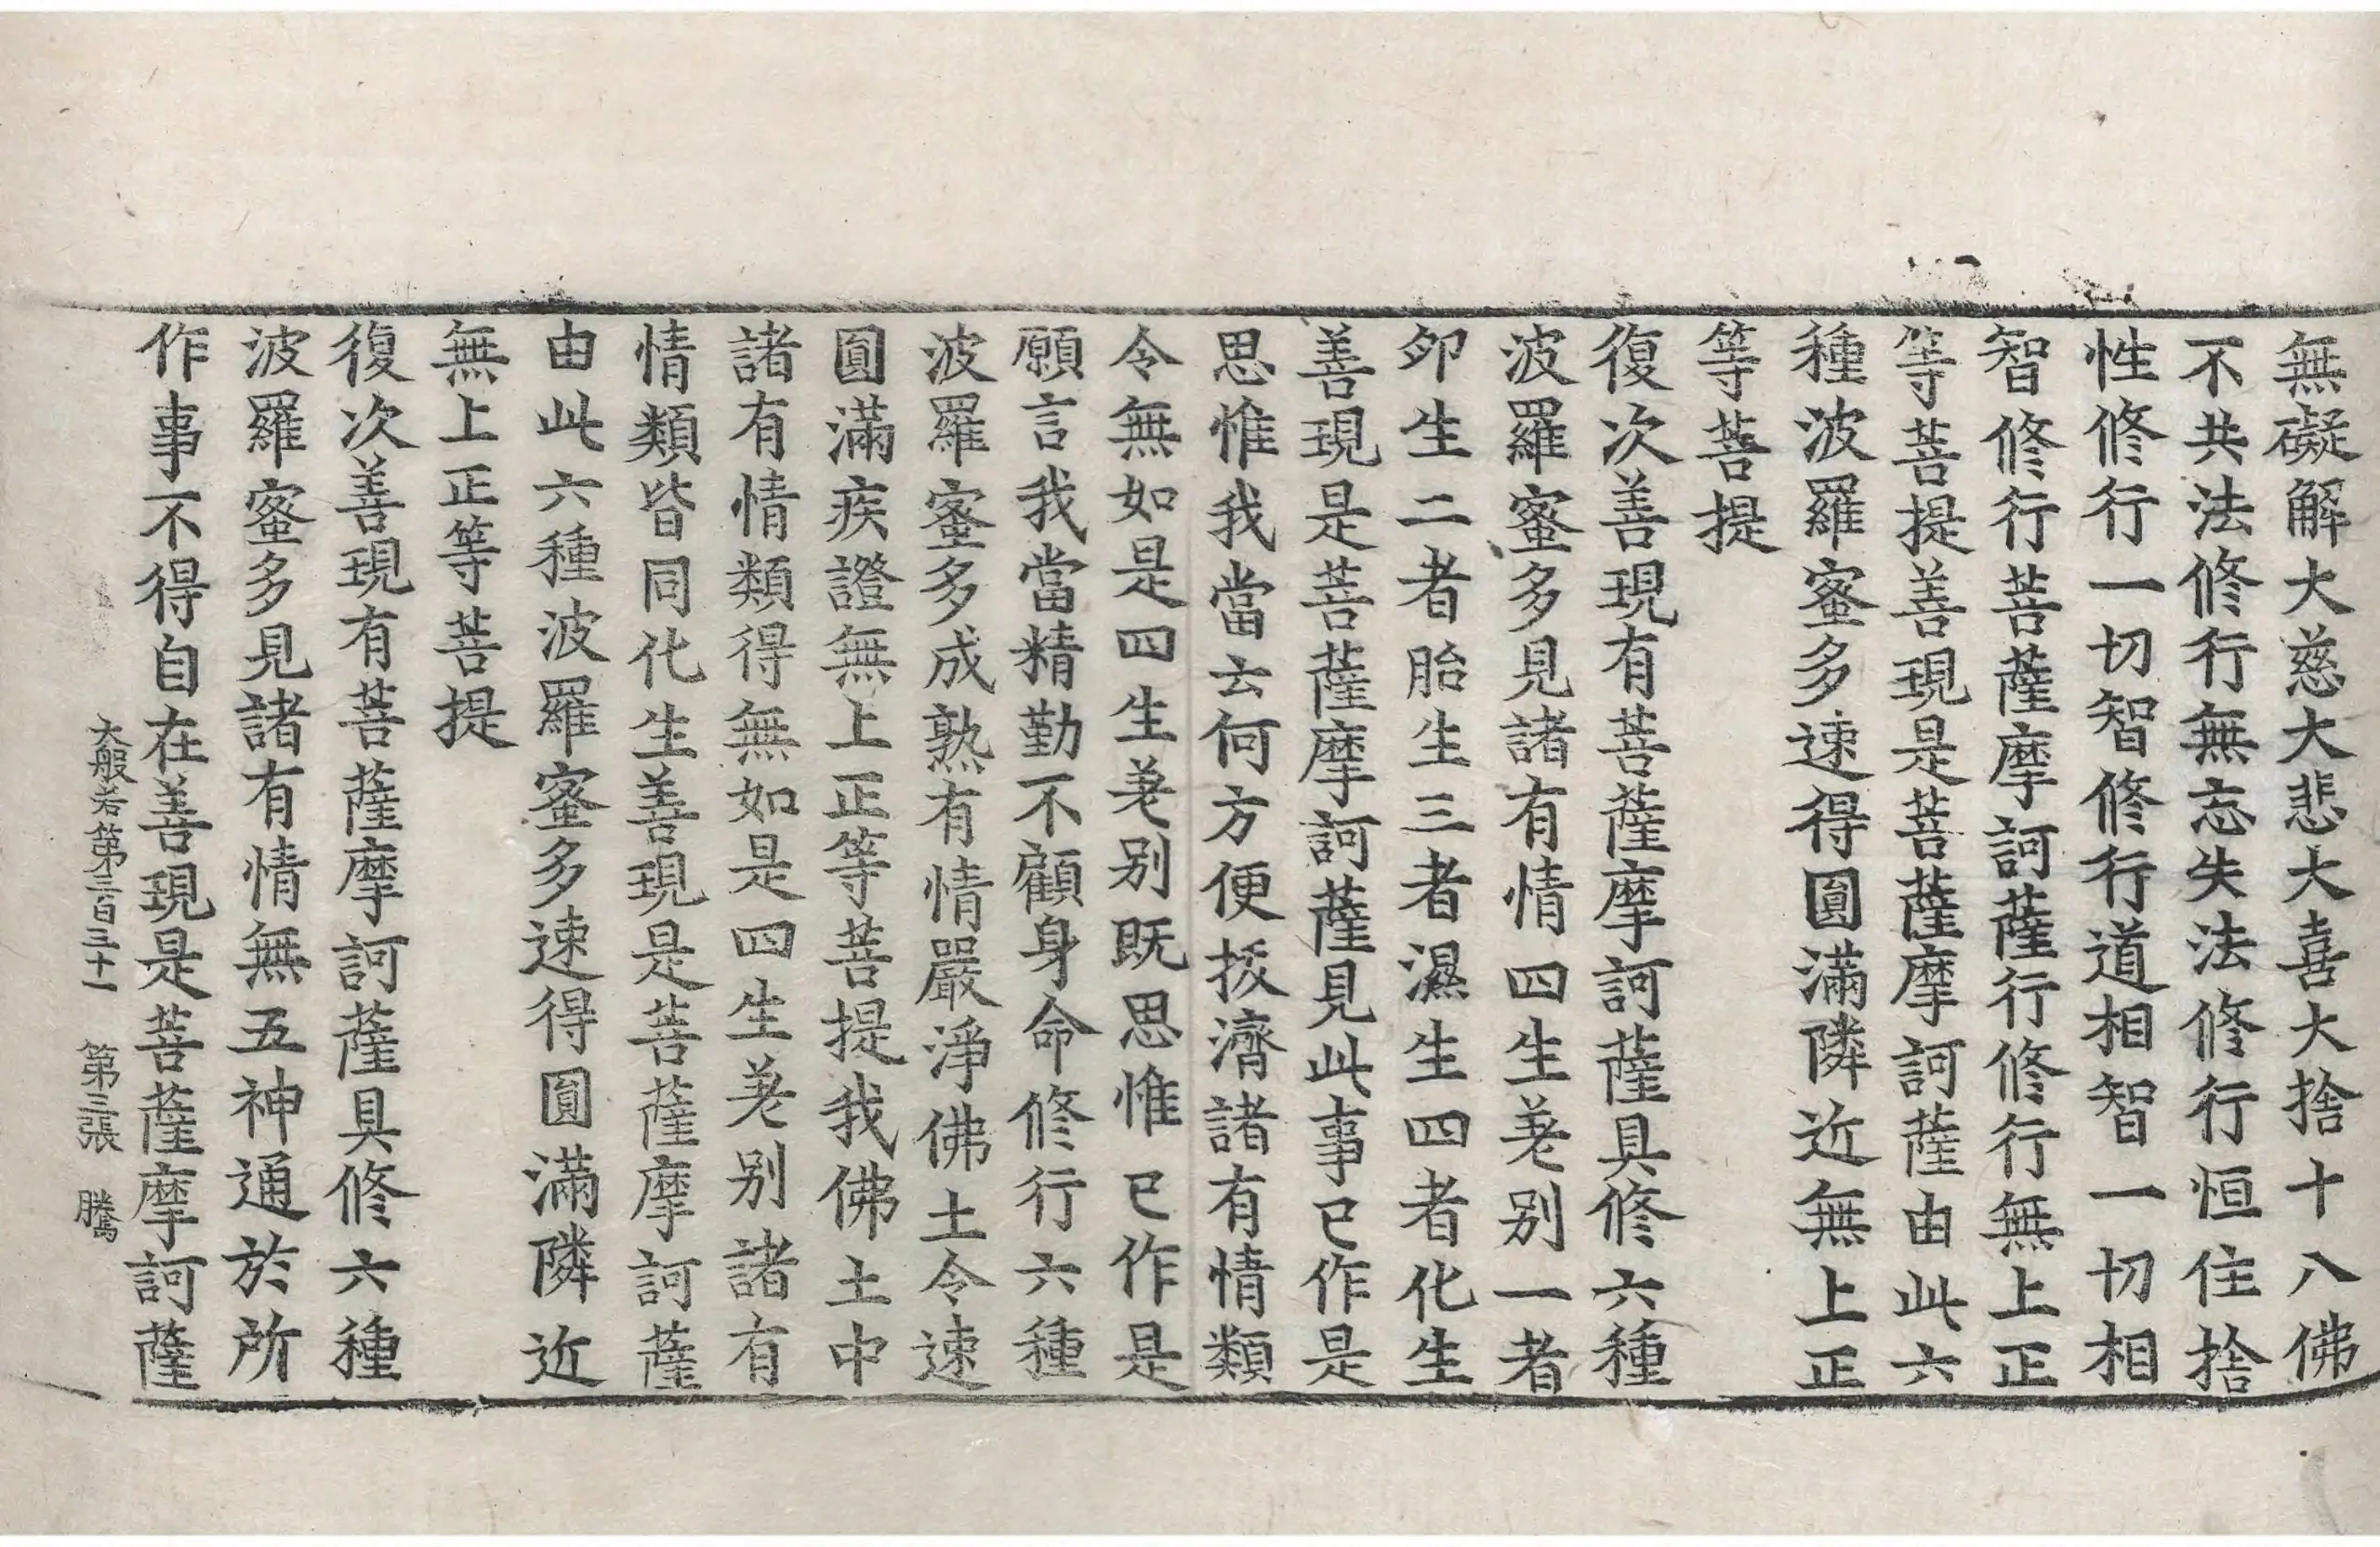 無礙解大慈大悲大喜大捨十八佛
不共法修行無忘失法修行恒住捨
性修行一切智修行道相智一切相
智修行菩薩摩訶薩行修行無上正
等菩提善現是菩薩摩訶薩由此六
種波羅蜜多速得圓滿隣近無上正
等菩提
復次善現有菩薩摩訶薩具修六種
波羅蜜多見諸有情四生差别一者
卵生二者胎生三者濕生四者化生
善現是菩薩摩訶薩見此事已作是
思惟我當云何方便拔濟諸有情類
令無如是四生差别既思惟已作是
願言我當精勤不顧身命修行六種
波羅蜜多成熟有情嚴淨佛土令速
圓滿疾證無上正等菩提我佛土中
諸有情類得無如是四生差别諸有
情類皆同化生善現是菩薩摩訶薩
由此六種波羅蜜多速得圓滿隣近
無上正等菩提
復次善現有菩薩摩訶薩具修六種
波羅蜜多見諸有情無五神通於所
作事不得自在善現是菩薩摩訶薩
大般若第三百三十一 第三張 騰